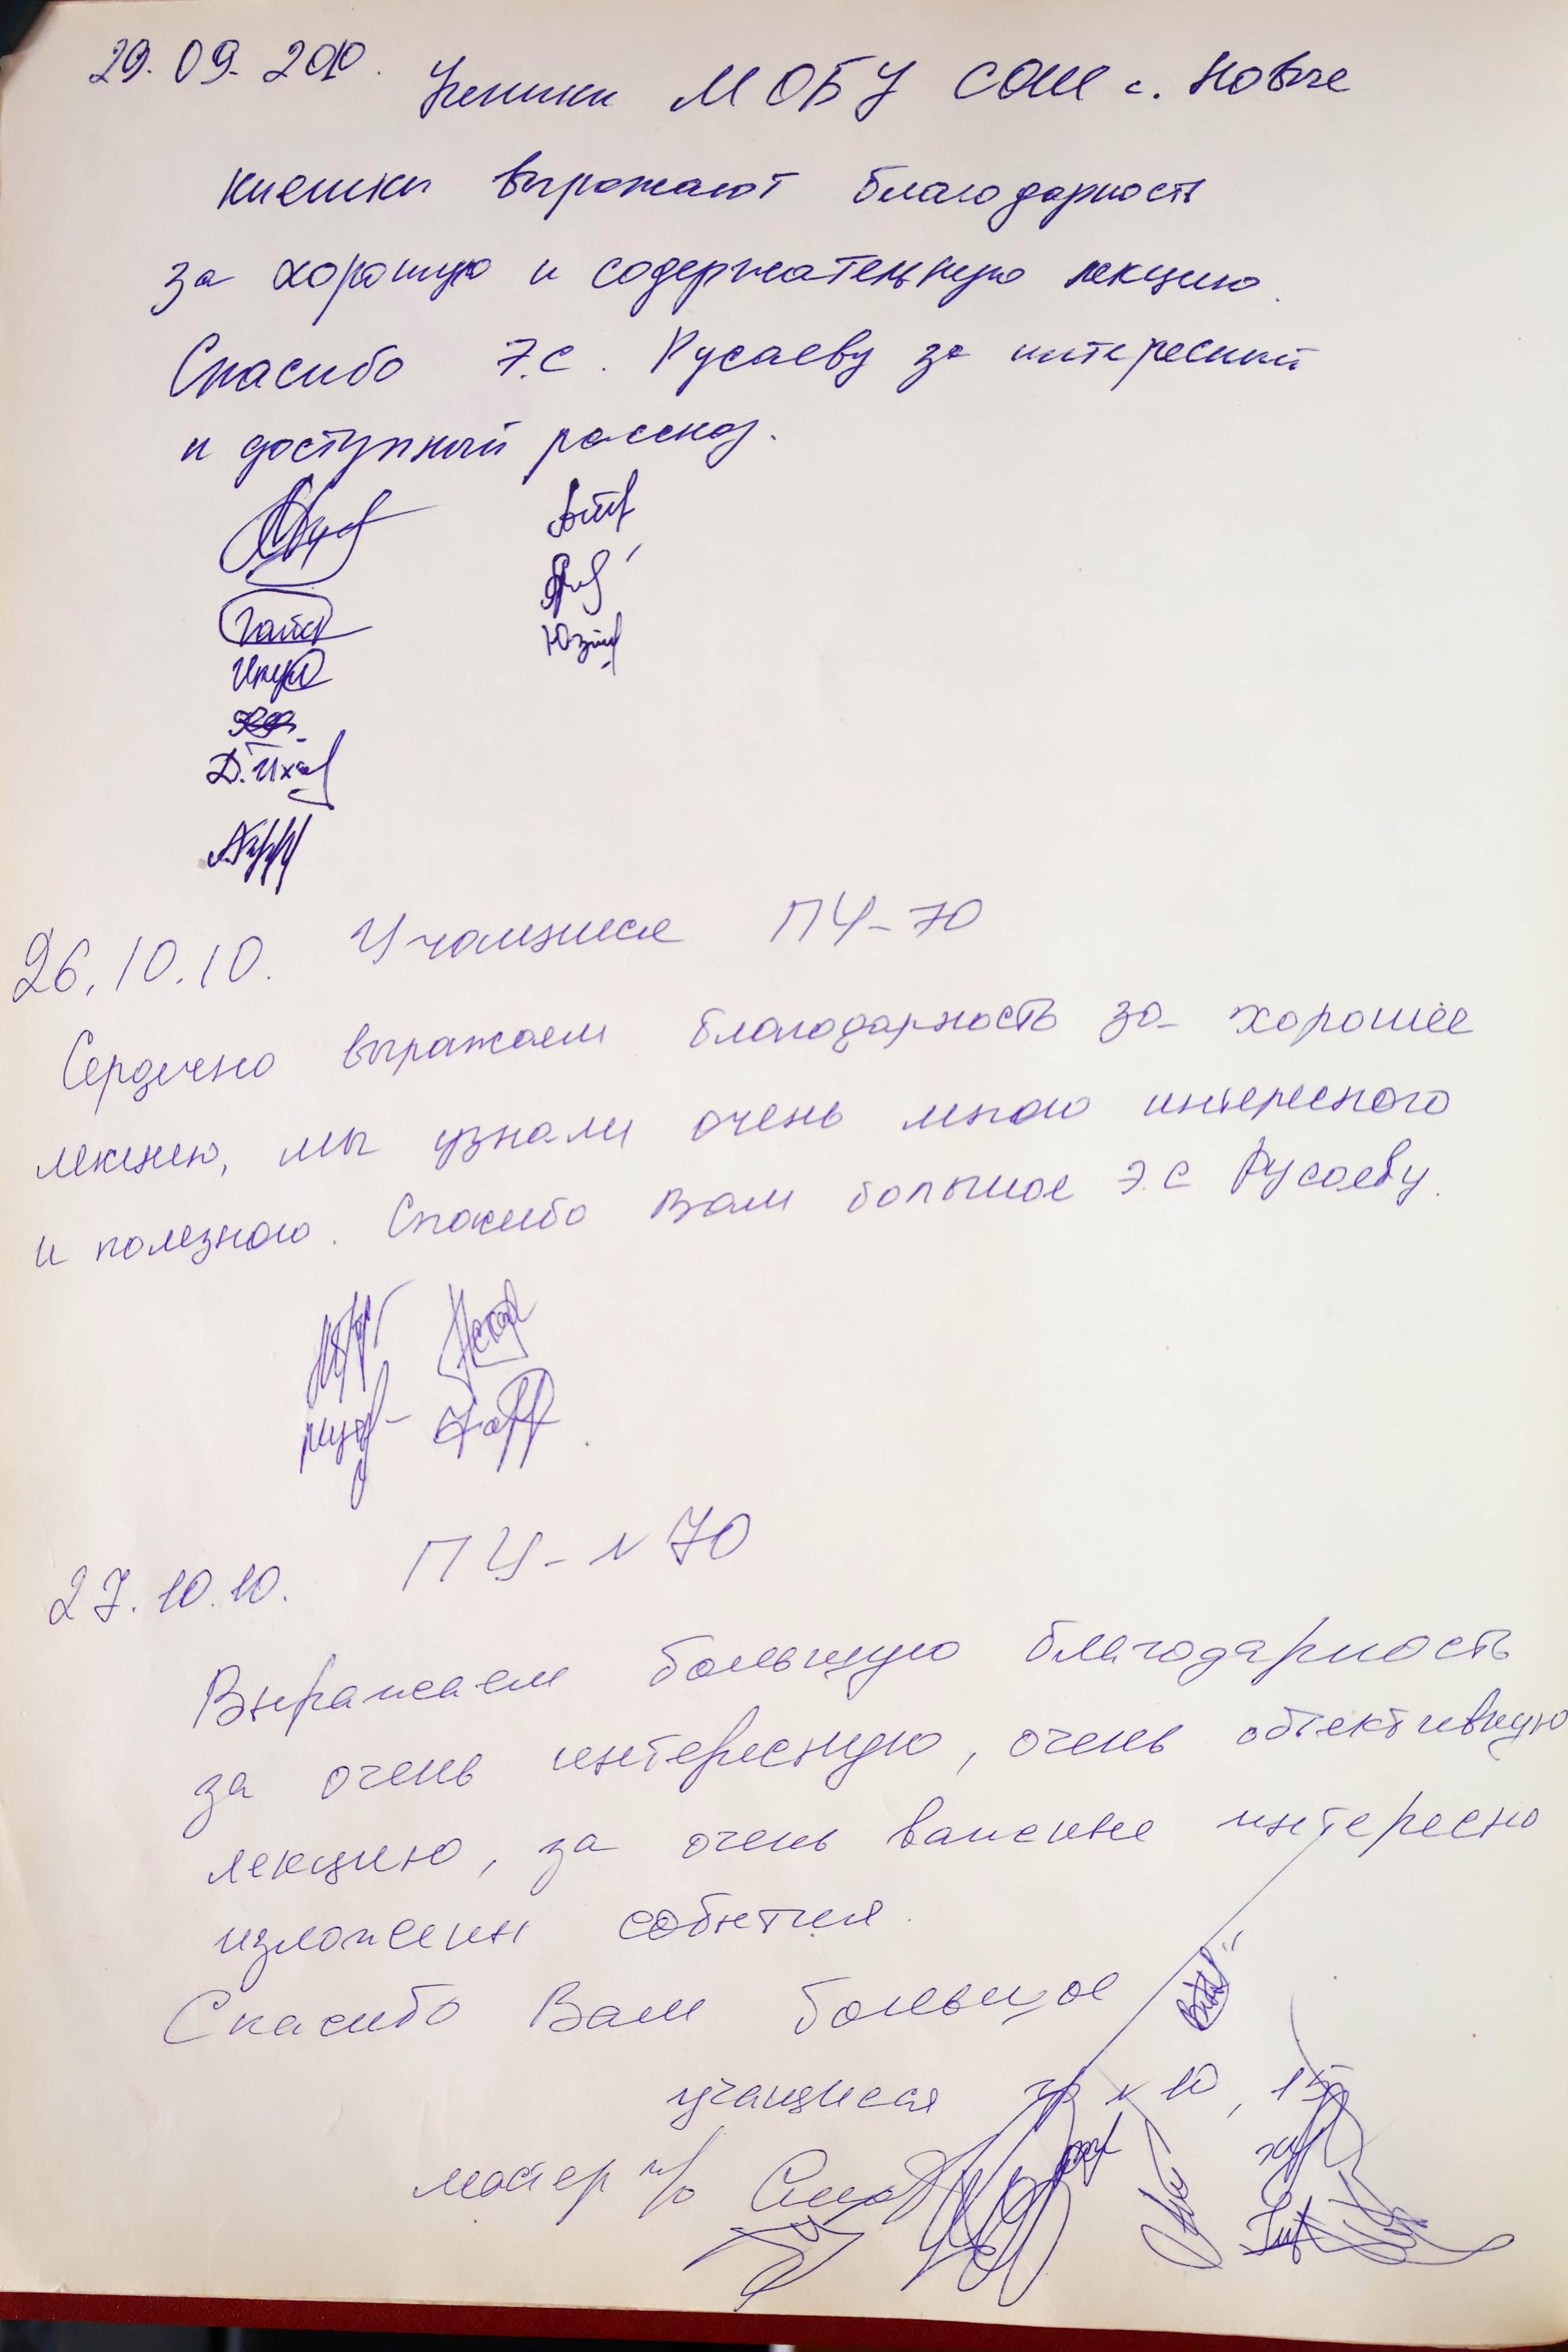 29.09.2010. Ученики МОБУ СОШ с. Новые
киешки выражают благодарность
за хорошую и содержательную лекцию.
Спасибо Э.С. Русаеву за интересный
и доступный рассказ.
Д. Иха
26.10.10. Учащиеся ПУ-70
Сердечно выражаем благодарность за хорошее
лекцию, мы узнали очень много интересного
и полезного. Спасибо Вам большое Э.С Русаеву.
27.10.10. ПУ-N70
Выражаем большую благодарность
за очень интересную, очень объективную
лекцию, за очень важные интересно
изложены события.
Спасибо Вам большое
учащиеся гр N 10, 15
мастер п/о